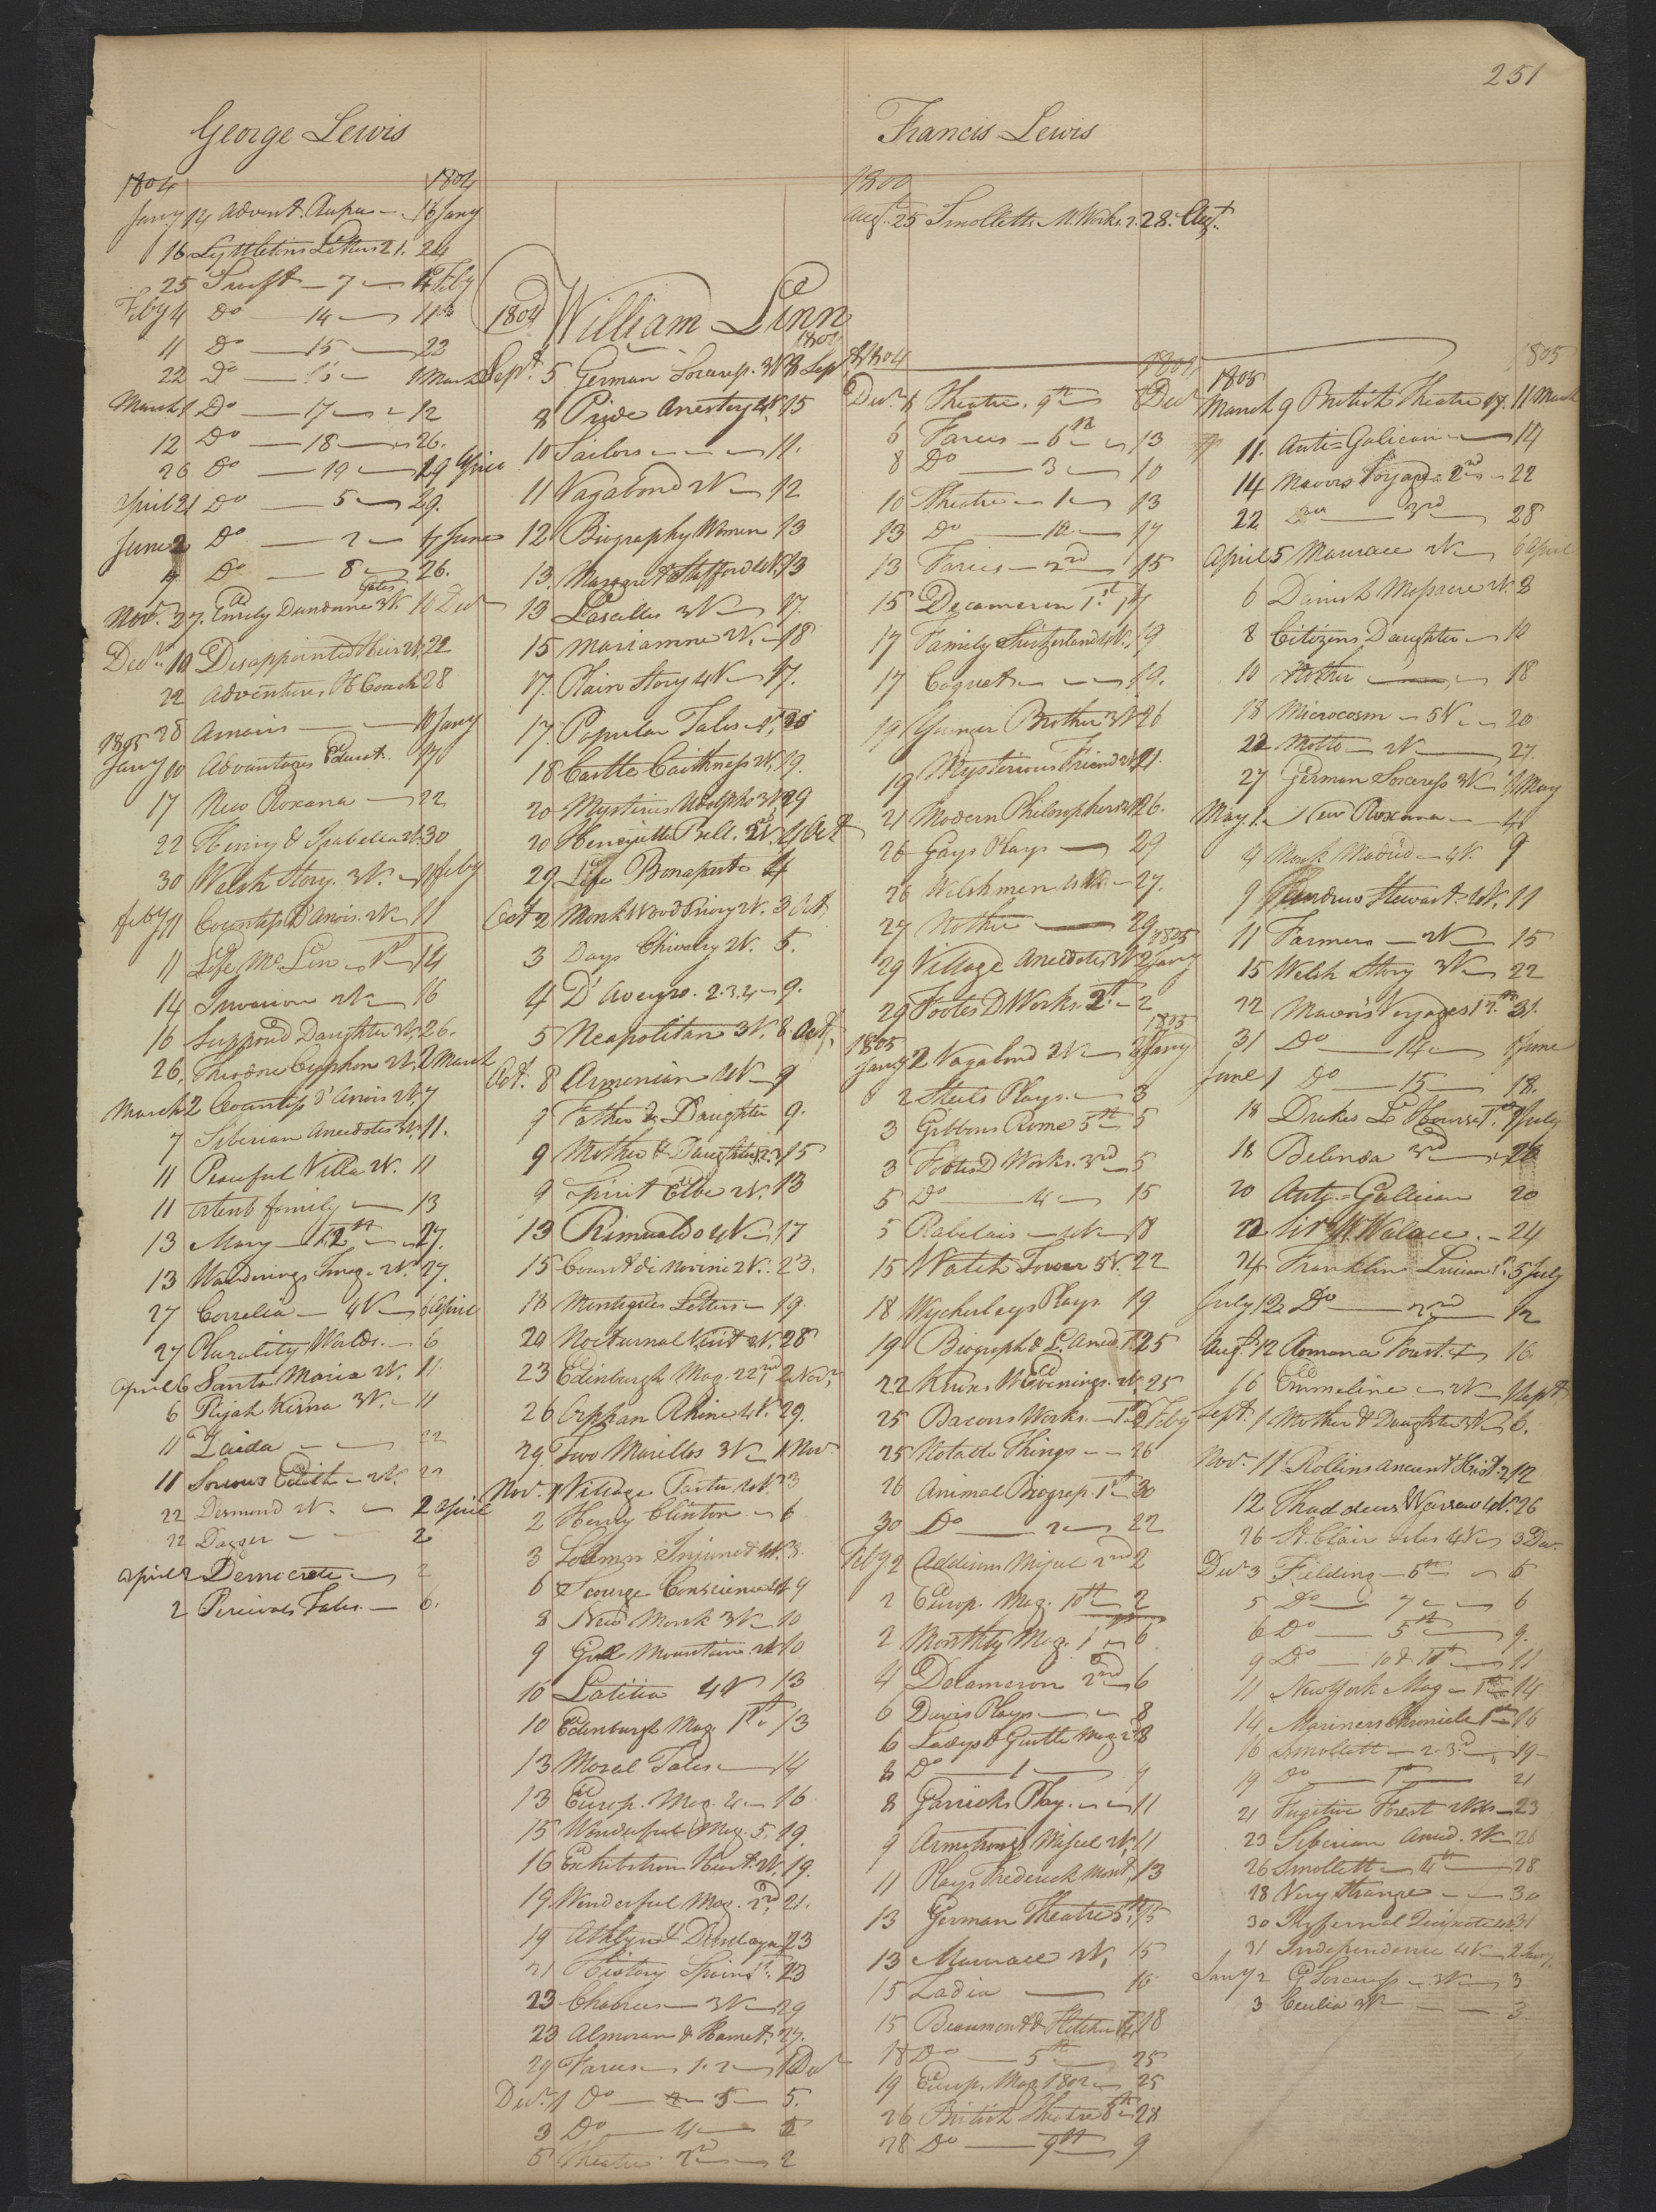 251
George Lewis
1804 1804
Jany 14 Advent. Aupa 16 Jany
16 Lyttletons Letters 2 1. 24
25 Swift 7 4 Feby
Feby 4 Do 14 11
11 Do 15 22
22 Do 1 March
March 1 Do 17 12
12 Do 18 26.
26 Do 19 19 April
April 21 Do 5 29.
June 2 Do 2 4 June
4 Do 8 26.
Nov. 27. Emily Dundorne 3V. 10 Decr
Decr. 10 Disappointed Heir 2V. 22
22 Adventures H Coach 28
28 Amaris 10 Jany
1805
Jany 10 Advantages Educat. 17
17 New Roxana 22
22 Henry & Isabella 2V. 30
30 Welsh Story. 3V. 11 Feby
Feby 11 Countess D'Anois. 2V. 11
11 Life Mc Lin 1st 14
14 Invasion 2V 16
16 Supposed Daughter 3V. 26.
26. Theodore Cyphon 2V. 2 March
March 2 Countess d'Anois 2V. 7
7 Siberian Anecdotes 3V. 11.
11 Peaceful Villa 2V. 11
11 family 13
13 Mary 27.
13 Wanderings Imag. 2V. 27.
27 Correlia 4V 6 April
27 Plurality Worlds. 6
April 6 Santa Maria 2V. 11
6 Rijah Kirna 3V. 11
11 Zaida 22
11 Sorrows Edith 2V. 22
22 Desmond 2V. 2 April
22 Dagger 2
April 2 Democrate 2
2 Percivals Tales. 6.
1804 William Linn
1804
Sept. 5 German Sorceress. 3V. 8 Sept
8 Pride Ancestry 4V. 15
10 Sailors 11.
11 Vagabond 2V 12
12 Biography Women 13
13. Margaret Strafford 4V. 13
13 Lascelles 3V 17.
15 Mariamne 2V. 18
17. Plain Story 4V 17.
17. Popular Tales 1st 20
18 Castle Caithness 2V. 19.
20 Mysterious Udolpho 3V. 29
20 Henryetta Bell. 2V. 4 Oct
29 Life Bonaparte 4
Oct 2 Monk Wood Priory 2V. 3 Oct
3 Days Chivalry 2V. 5.
4 D'Aveyro. 2.3.4 9.
5 Neapolitan 3V. 8 Oct.
Oct. 8 Armenian 4V 9
9 Father & Daughter 9.
9 Mother & Daughter 2.3 15
9 Spirit Elbe 2V. 13
13 Rimualdo 4V 17
15 Count di Novini 2V. 23.
18 Montegues Letters 19.
20 Nocturnal Visit 2V. 28
23 Edinburgh Mag. 22nd 2 Novr
26 Orphan Rhine 4V. 29.
29. Two Marillos 3V 1 Nov.
Nov. 1 Village Pastor 2V. 3
2 Henry Clinton 6
3 Solemn Injunct 4V. 8.
6 Scourge Conscience 4V. 9
8 New Monk 3V 10
9 Gull Mountain 2V. 10
10 Latitia 4V 13
10 Edinburgh Mag. 1st. 13
13 Moral Tales 14
13 Europ. Mag. 4. 16
15 Wonderful Mag. 5. 19.
16 Exhibition Heart. 2V. 19.
19. Wonderful Mag. 2nd 21.
19 Athlyn & Dunbayn 23
21 History Spain 1st 23
23 Charies 3V 29
23 Almoran & Hamet. 27.
29 Farces 1. 2 1 Decr
Decr. 1 Do 3 5.
3 Do 4 5
5 Theatre 2nd 2
Francis Lewis
1800
Augt. 25 Smolletts M. Works. 2. 28. Augt.
1804 1804
Decr. 5 Theatre. 9th 8 Decr
6 Farces 6th 13
8 Do 3 10
10 Theatre 1 13
13 Do 10 17
13 Farces 2nd 15
15 Decameron 1st 17
17 Family Switzerland 4V. 19
17 Coquet 19.
19 Younger Brother 3V 26
19 Mysterious Friend 2V. 21.
21 Modern Philosophers 3V. 26.
26 Gays Plays 29
26 Welshmen 4V. 27.
27 Mother 29
1805
29 Village Anecdotes 3V. 2 Jany
29 Footes D Works. 2nd 2
1805 1805
Jany 2 Vagabond 2V 3 Jany
2 Steels Plays. 3
3 Gibbons Rome 5th 5
3 Footes D Works. 3rd 5
5 Do 4 15
5 Rabelais 4V 18
15 Watch Tower 5V. 22
18 Wycherleys Plays 19
19 Biograph & L. Anecd. 1st. 25
22 Winters Evenings. 2V. 25
25 Bacons Works. 1st 2 Feby
25 Notable Things 26
26 Animal Biograp. 1st 30
30 Do 2 22
Feby 2 Addisons Miscel 2nd 2
2 Europ. Mag. 10th 2
2 Monthly Mag. 1 6
4 Decameron 2nd 6
6 Davis Plays 8
6 Ladys & Gentle Mag 2d 8
8 Do 1 9
8 Garricks Play. 11
9 Armstrongs Miscel 2V. 11
11 Plays Frederick Mont. 13
13 German Theatre 5th 15
13 Maurace 2V. 15
15 Zadia 16
15 Beaumont & Fletcher 4 18
18 Do 5th 25
19 Europ. Mag. 1802 25
26 British Theatre 8th 28
28 Do 9th 9
1805 1805
March 9 British Theatre 17. 11 March
11. Anti=Galican 14
14 Mavors Voyages 2nd 22
22 Do 3rd 28
April 5 Maurace 2V 6 April
6 Danish Massacre 2V. 8
8 Citizens Daughter 10
10 Mother 18
18 Microcosm 5V. 20
22 Motto 2V 27.
27 German Sorceress 3V 1 May
May 1. New Roxana 4
4 Monk Madrid 4V. 9
9 Andrew Stewart. 4V. 11
11 Farmers 2V 15
15 Welsh Story 3V 22
22 Mavors Voyages 31.
31 Do 14 1 June
June 1 Do 15 18.
18 Drakes L Hours 1st. July
18 Belinda 3rd 26
20 Anty=Gallican 20
22 Sir W. Walace. 24
24 Franklin Lucian 1st. 5 July
July 12 Do 2nd 12
Augt. 12 Romance Forst. 16.
16 Emmeline 2V 1 Sept
Sept. 1 Mother & Daughter 3V 6.
Nov. 11 Rollins Ancient Hist. 2 12
12 Thaddeus Warsaw 4V. 26
26 St. Clair Isles 4V 3 Decr.
Decr. 3 Fielding 6th 5
5 Do 7 6
6 Do 5th 9.
9 Do 10 & 11th 11
11 New York Mag 1st 14
14 Mariners Chronicle 1st 16
16 Smollett 2. 3rd 19
19 Do 1st 21
21 Fugitive Forest 2Vs 23
23 Siberian Anecd. 3V 26
26 Smollett 4th 28
28 Very Strange 30
30 Infernal Quixote 4V 31
31 Independence 4V 2 Jany.
Jany 2 G. Sorceress 3V 3
3 Cecilia 3V 3